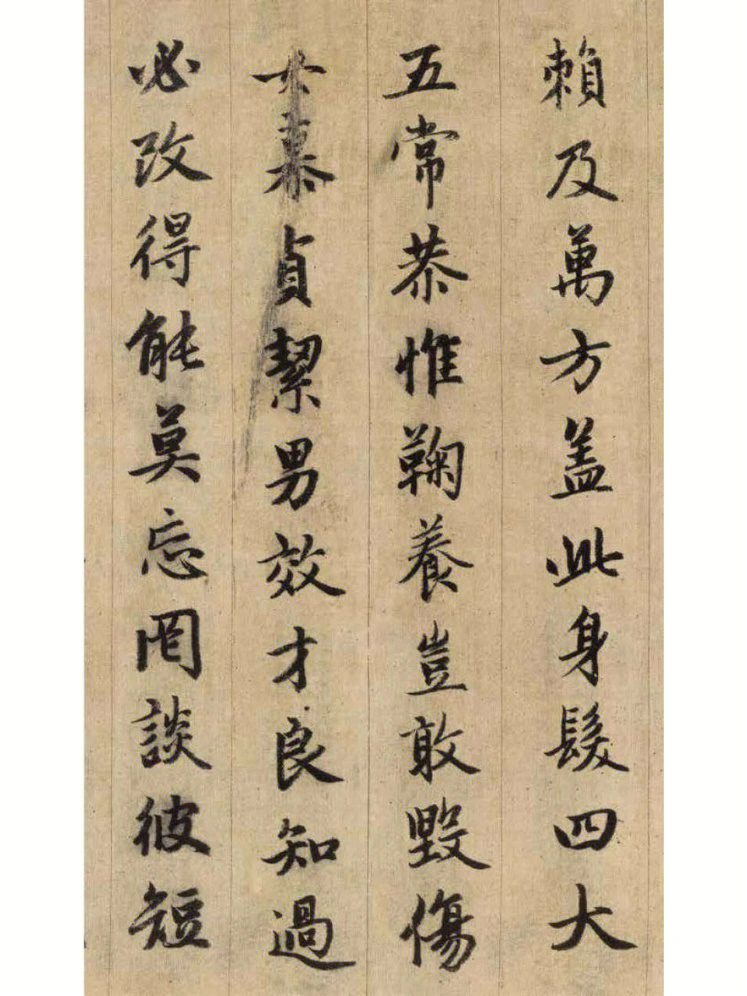 賴及萬方盖此身髮四大
五常恭惟鞠養豈敢毀傷
女慕貞絜男效才良知過
必改得能莫忘罔談彼短